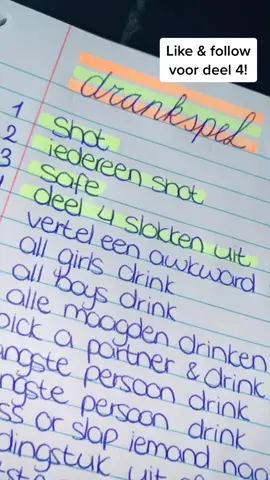 Like & follow
voor deel 4!
drankspel
1 shot
2 iedereen shot
3 safe
deel 4 slokken uit
vertel een awkward
all girls drink
all boys drink
alle maagden drinken
pick a partner & drink
ngste persoon drink
ngste persoon drink
ss or slap iemand naa
dingstuk uit of